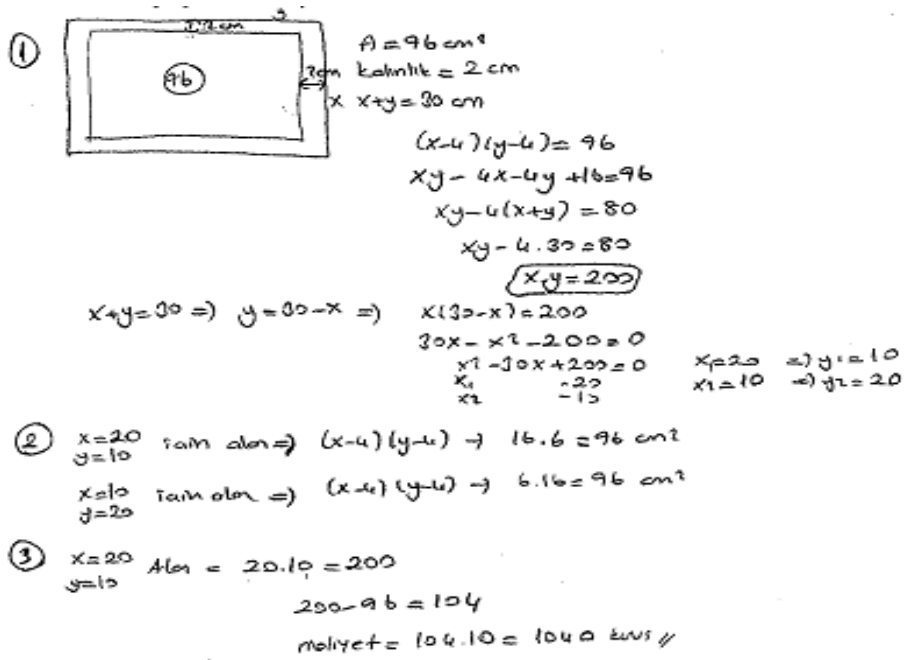 y
2cm
① A = 96 cm²
96
2cm kalınlık = 2 cm
x x+y = 30 cm
(x-4)(y-4) = 96
xy - 4x - 4y + 16 = 96
xy - 4(x+y) = 80
xy - 4.30 = 80
x.y = 200
x+y=30 => y = 30-x => x(30-x) = 200
30x - x² - 200 = 0
x² - 30x + 200 = 0 x₁=20 => y₁=10
x₁ -20 x₂=10 => y₂=20
x₂ -10
② x=20 için alan => (x-4)(y-4) → 16.6 = 96 cm²
y=10
x=10 için alan => (x-4)(y-4) → 6.16 = 96 cm²
y=20
③ x=20 Alan = 20.10 = 200
y=10
200-96 = 104
maliyet = 104.10 = 1040 kuruş //